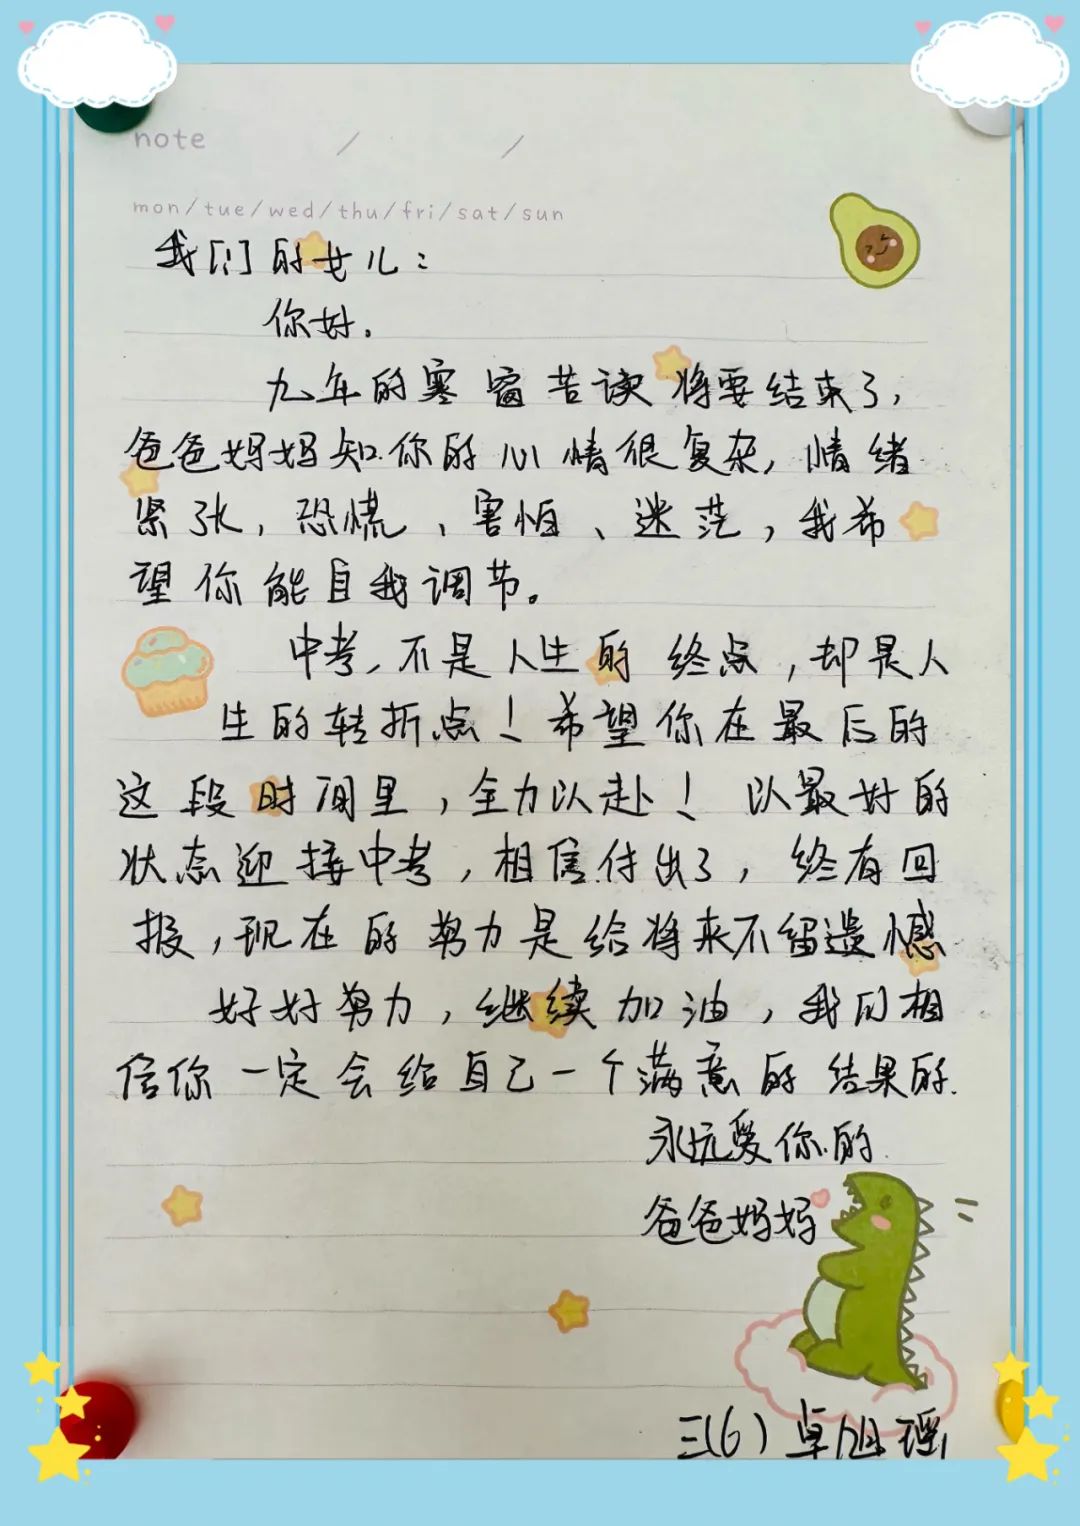 note / /
mon/tue/wed/thu/fri/sat/sun
我们的女儿：
你好。
九年的寒窗苦读将要结束了，
爸爸妈妈知你的心情很复杂，情绪
紧张，恐慌、害怕、迷茫，我希
望你能自我调节。
中考，不是人生的终点，却是人
生的转折点！希望你在最后的
这段时间里，全力以赴！以最好的
状态迎接中考，相信付出了，终有回
报，现在的努力是给将来不留遗憾
好好努力，继续加油，我们相
信你一定会给自己一个满意的结果的.
永远爱你的
爸爸妈妈
三(6)卓旭瑶